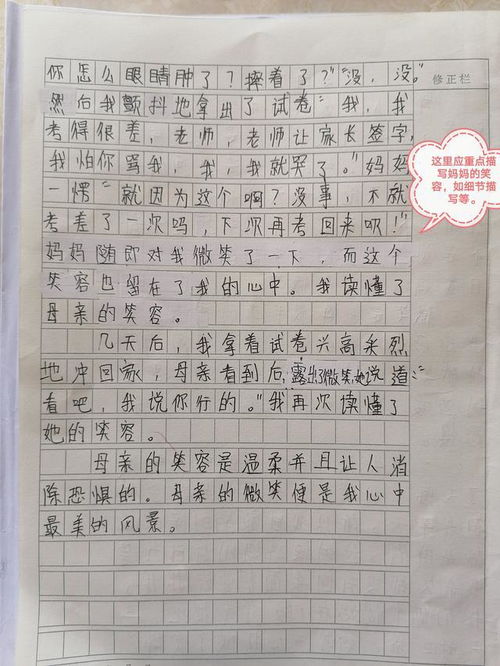 你怎么眼睛肿了？摔着了？”“没，没。”
然后我颤抖地拿出了试卷“我，我
考得很差，老师，老师让家长签字，
我怕你骂我，我，我就哭了。”妈妈
一愣“就因为这个啊？没事，不就
考差了一次吗，下次再考回来呗！”
妈妈随即对我微笑了一下，而这个
笑容也留在了我的心中。我读懂了
母亲的笑容。
几天后，我拿着试卷兴高采烈
地冲回家，母亲看到后，露出了微笑，她说道：“
看吧，我说你行的。”我再次读懂了
她的笑容。
母亲的笑容是温柔并且让人消
除恐惧的。母亲的微笑便是我心中
最美的风景。
修正栏
这里应重点描
写妈妈的笑
容，如细节描
写等。